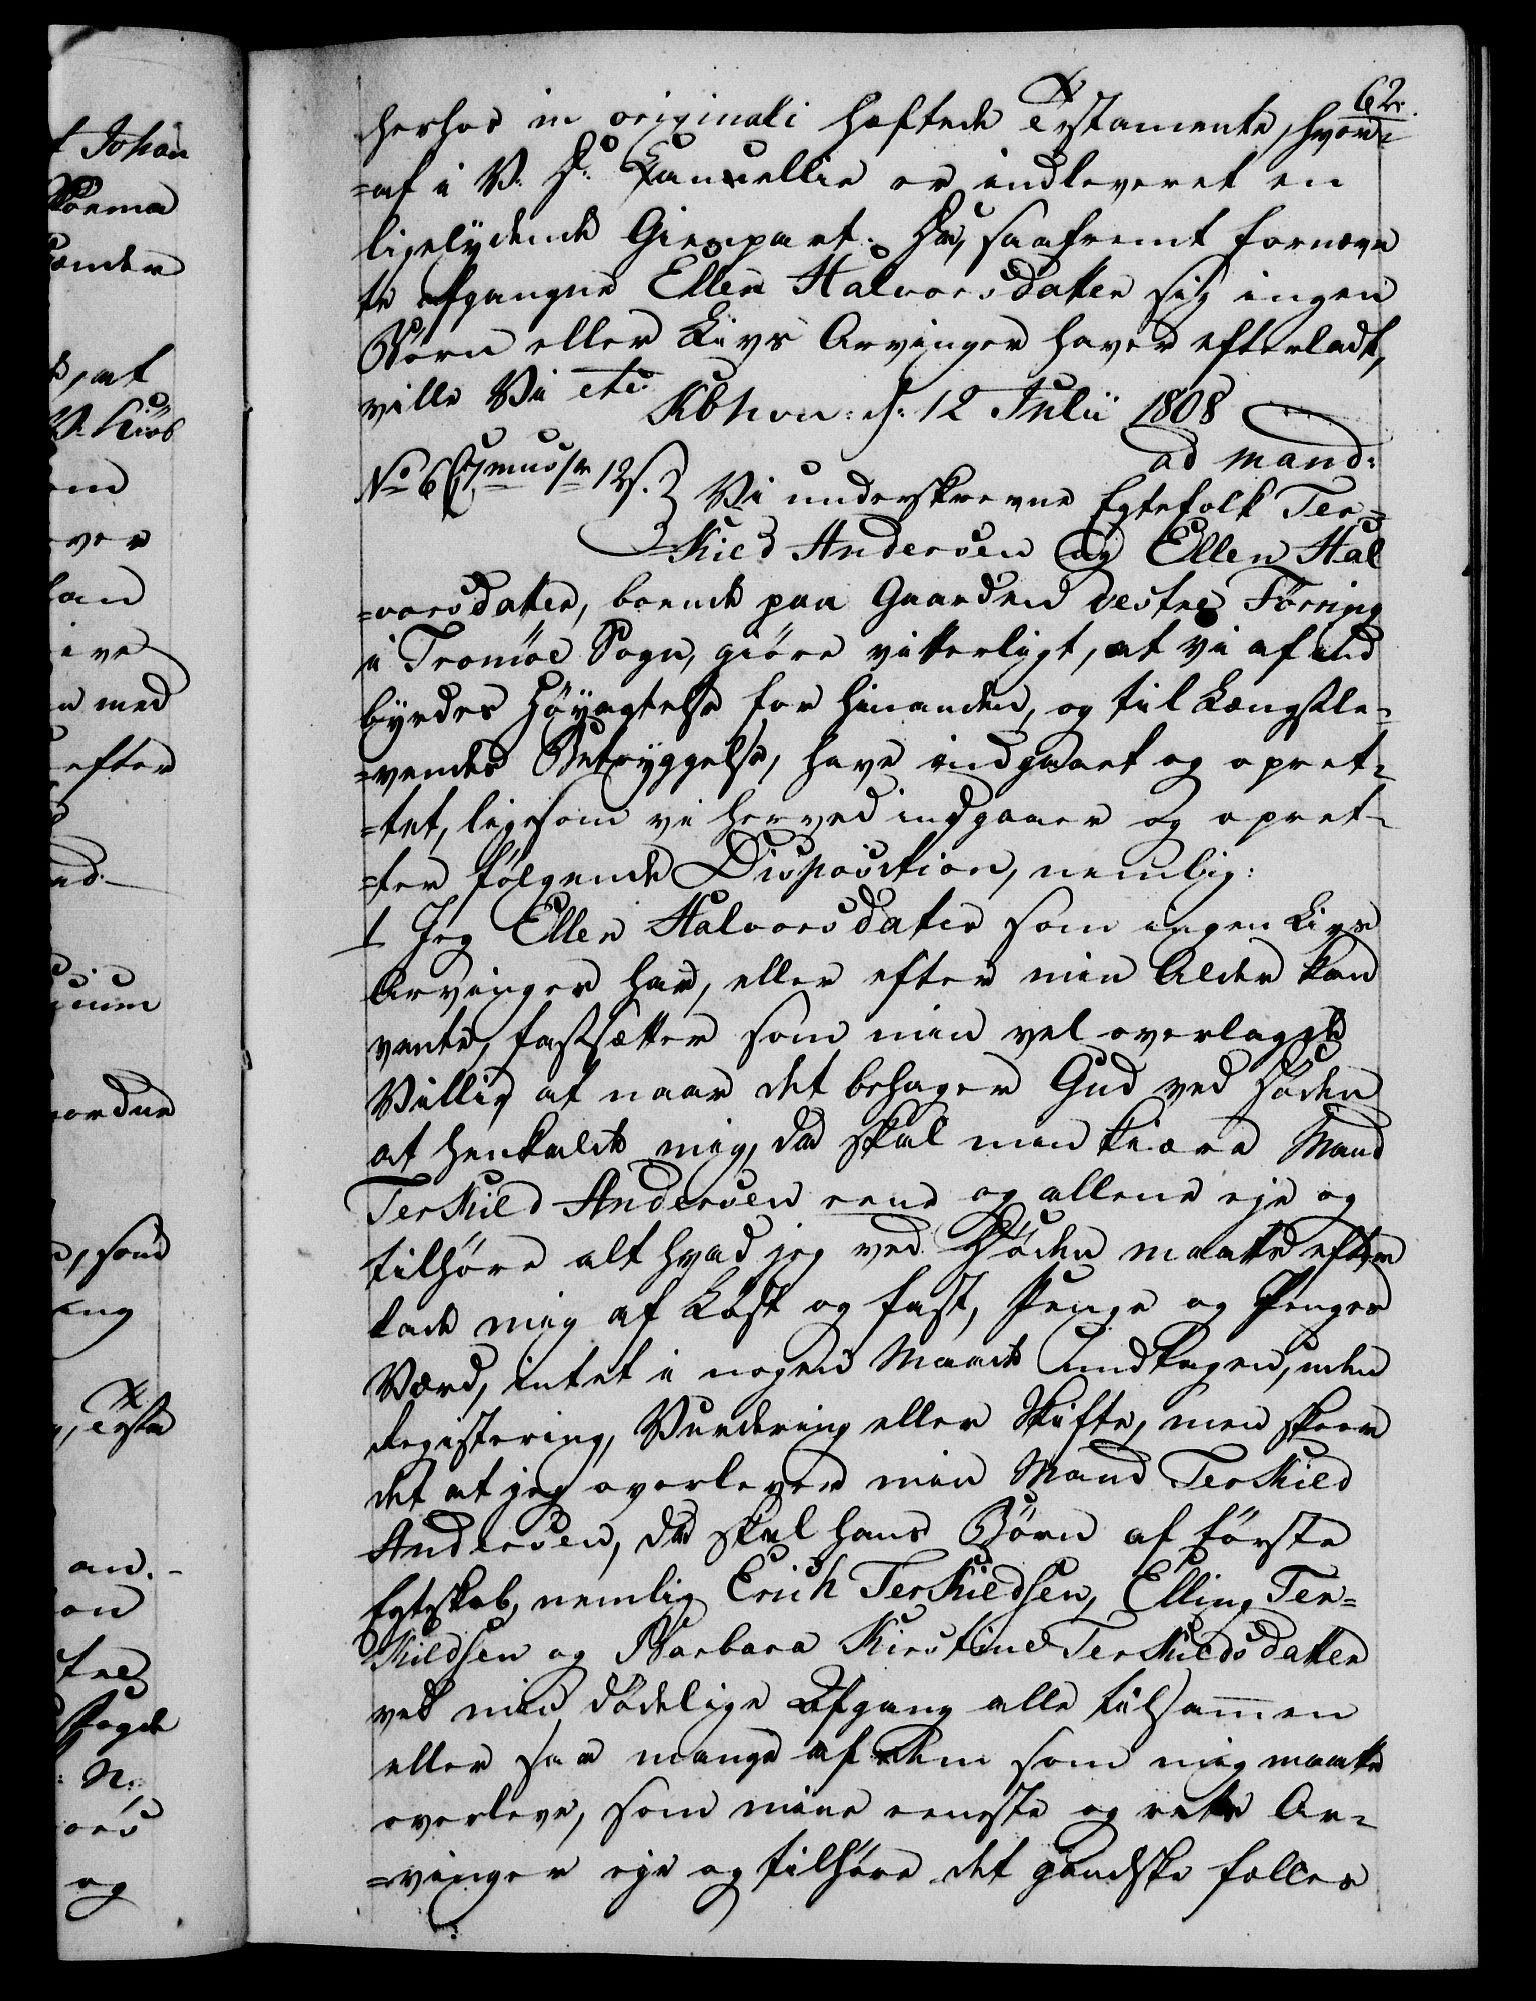 62.
herhos in originali heftede Testamente, hvor-
=af i V. D: Cancellie er indleveret en
ligelÿdende Gienpart. Da, saafremt fornevn
te afgangne Ellen Halvorsdatter sig ingen
Børn eller Livs Arvinger haver efterladt,
ville Vi etc.
Kbhvn: d: 12 Julii 1808
ad mand:
No 6 12 s. Vi underskrevne Egtefolk Ter=
Kild Andersen og Ellen Hal
=vorsdatter, boende paa Gaarden vestre Torring
i Tromöe Sogn, giöre vitterligt, at vi af ind
byrdes Höyagtelse for hinanden, og til Længstle-
=vendes Betryggelse, have indgaaet og opret-
=tet, ligesom vi herved indgaaer og opret-
=ter følgende Disposition, nemlig:
1 Jeg Ellen Halvorsdatter som ingen Livs
Arvinger har, eller efter min Alder kan
vente, fastsætter som min vel overlagde
Villie at naar det behager Gud ved Döden
at henkalde mig, da skal min kiære Mand
Terkild Andersen eene og allene eje og
tilhöre alt hvad jeg ved Döden maatte efter
lade mig af Löst og fast, Penge og Penges
Værd, intet i nogen Maade undtagen, uden
Registering, Vurdering eller Skifte, men skeer
det at jeg overlever min Mand Terkild
Andersen, da skal hans Börn af förste
Egteskab, nemlig Erich Terkildsen, Elling Ter=
Kildsen og Barbara Kirstine Terkildsdatter
ved min dödelige Afgang alle tilsammen
eller saa mange af dem som mig maatte
overleve, som mine eeneste og rette Ar-
=vinger eje og tilhöre det gandske fælles
t Johan
at
med
efter
som
og